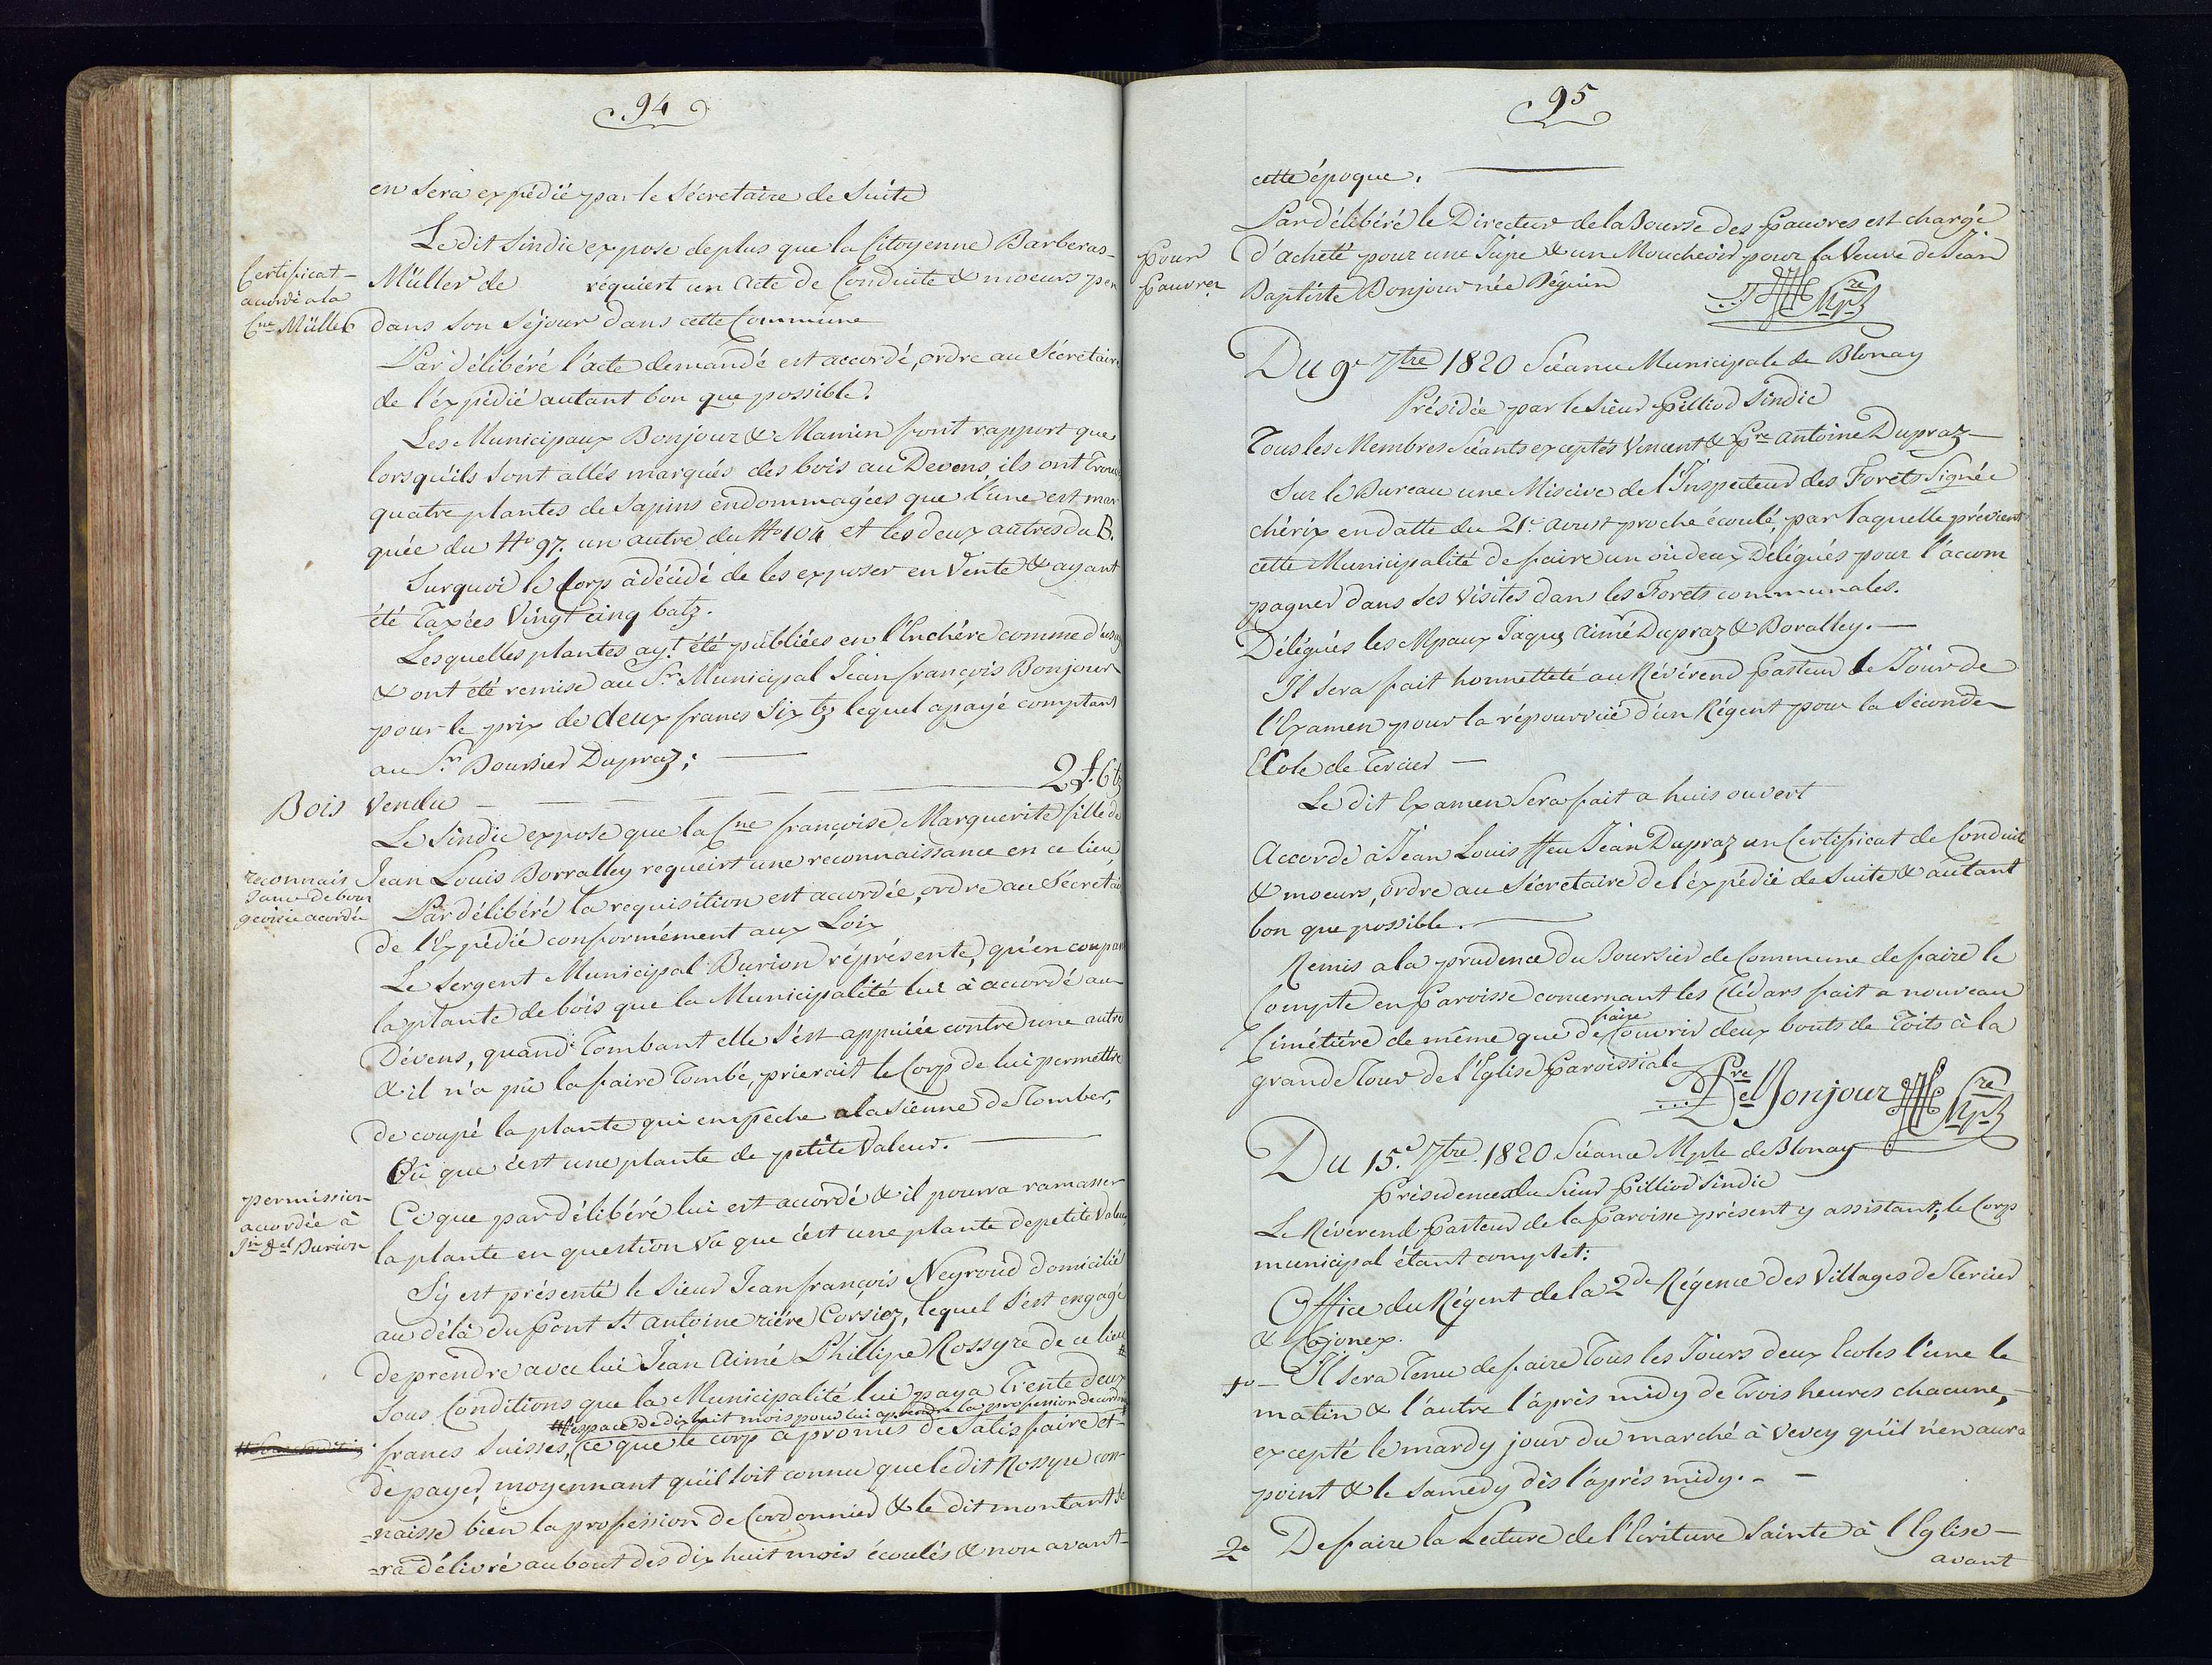 94
en sera expédié par le Sécretaire de Suite
Le dit Sindic expose de plus que la Citoyenne Barberas-
Certificat-
accordé a la
Cne Müller
Müller de réquiert un acte de Conduite & moeurs pen
dans son Séjour dans cette Commune
Par délibéré l'acte demandé est accordé, ordre au Sécretaire
de l'éxpédié autant bon que possible.
Les Municipaux Bonjour & Mamin font rapport que
lorsquils sont allés marqués des bois au Devens ils ont trouvé
quatre plantes de Sapins endommagées que l'une est mar
quée du No 97. un autre du No 104 et les deux autres du B.
Surquoi le Corp à décidé de les exposer en Vente & ayant
été Taxées Vingt cinq batz.
Lesquelles plantes ayt. été publiées en l'Enchére comme d'usage
& ont été remise au Sr. Municipal Jean françois Bonjour
pour le prix de deux francs Six bz lequel a payé comptant
au Sr. Boursier Dupraz;
Bois Vendu 2 f. 6 bz
Le Sindic expose que la Cne françoise Marguerite fille de
reconnais
sance de bour
geoisie acordée
Jean Louis Borralley requeirt une reconnaissance en ce lieu
Par délibéré la requisition est accordée, ordre au Sécretaire
de l'Expédié conformément aux Loix
Le Sergent Municipal Burion réprésente, qu'en coupant
la plante de bois que la Municipalité lui à accordé au
Dévens, quand Tombant elle s'est appuiée contre une autre
& il n'a pû la faire Tombé, prierait le Corp de lui permettre
de coupé la plante qui empêche a la Sienne de Tomber,
Vû que c'est une plante de petite Valeur.
permission
accordée à
Jn Del Burion
Ce que par délibéré lui est accordé & il pourra ramasser
la plante en question Vû que c'est une plante de petite Valeur
S'y est présenté le Sieur Jean françois Neyroud domicilié
au délà du Pont St Antoine riére Corsier, lequel s'est engagé
de prendre avec lui Jean Aimé Phillipe Rossyre de ce lieu
Sous Conditions que la Municipalité lui paya Trente deux
# l'espace de dix huit mois pour lui aprendre la profession de cordonnier
francs Suisses, (ce que le corp a promis de Satisfaire et
de payer, moyennant qu'il soit connu que le dit Rossyre con-
-naisse bien la profession de Cordonnier & le dit montant Se
-ra délivré au bout des dix huit mois écoulés & non avant-
95
cette époque.
Pour
Pauvres
Par délibéré le Directeur de la Bourse des Pauvres est chargé
d'acheté pour une Jupe & un Mouchoir pour la Veuve de Jean
Baptiste Bonjour née Béguin
Du 9e 7bre 1820 Séance Municipale de Blonay
Présidée par le Sieur Pilliod Sindic
Tous les Membres Séants exceptés Vincent & Pre Antoine Dupraz-
Sur le Bureau une Miscive de l'Inspecteur des Forets Signée
chérix en datte du 21e. Aoust proche écoulé, par laquelle prévient
cette Municipalité de faire un ou deux Délégués pour l'accom
pagner dans ses Visites dans les Forets communales.
Délégués les Mpaux Jaques Aimé Dupraz & Boralley.-
Il sera fait honnetteté au Révérend Pasteur le Jour de
l'Examen pour la répourvue d'un Régent pour la Séconde
Ecole de Tercier -
Le dit Examen Sera fait a huis ouvert
Accordé à Jean Louis ffeu Jean Dupraz un Certificat de Conduite
& moeurs, ordre au Sécretaire de l'éxpédié de Suite & autant
bon que possible.
Remis a la prudence du Boursier de Commune de faire le
Compte en Paroisse concernant les Clédars fait a nouveau
Cimétiére de même que de faire Couvrir deux bouts de Toits à la
grande Tour de l'Eglise Paroissiale
Del Bonjour
Du 15e. 7bre. 1820 Séance Mple de Blonay
Présidence du Sieur Pilliod Sindic
Le Révérend Pasteur de la Paroisse présent y assistant; le Corp
municipal étant complet:
Office du Régent de la 2de Régence des Villages de Tercier
& Cojonex.
1o - Il Sera Tenu de faire Tous les Jours deux Ecoles l'une le
matin & l'autre l'aprés midy de Trois heures chacune,
excepté le mardy jour du marché à Vevey qu'il n'en aura
point & le Samedy dès l'aprés midy. - -
2o De faire la Lecture de l'Ecriture Sainte à l'Eglise-
avant